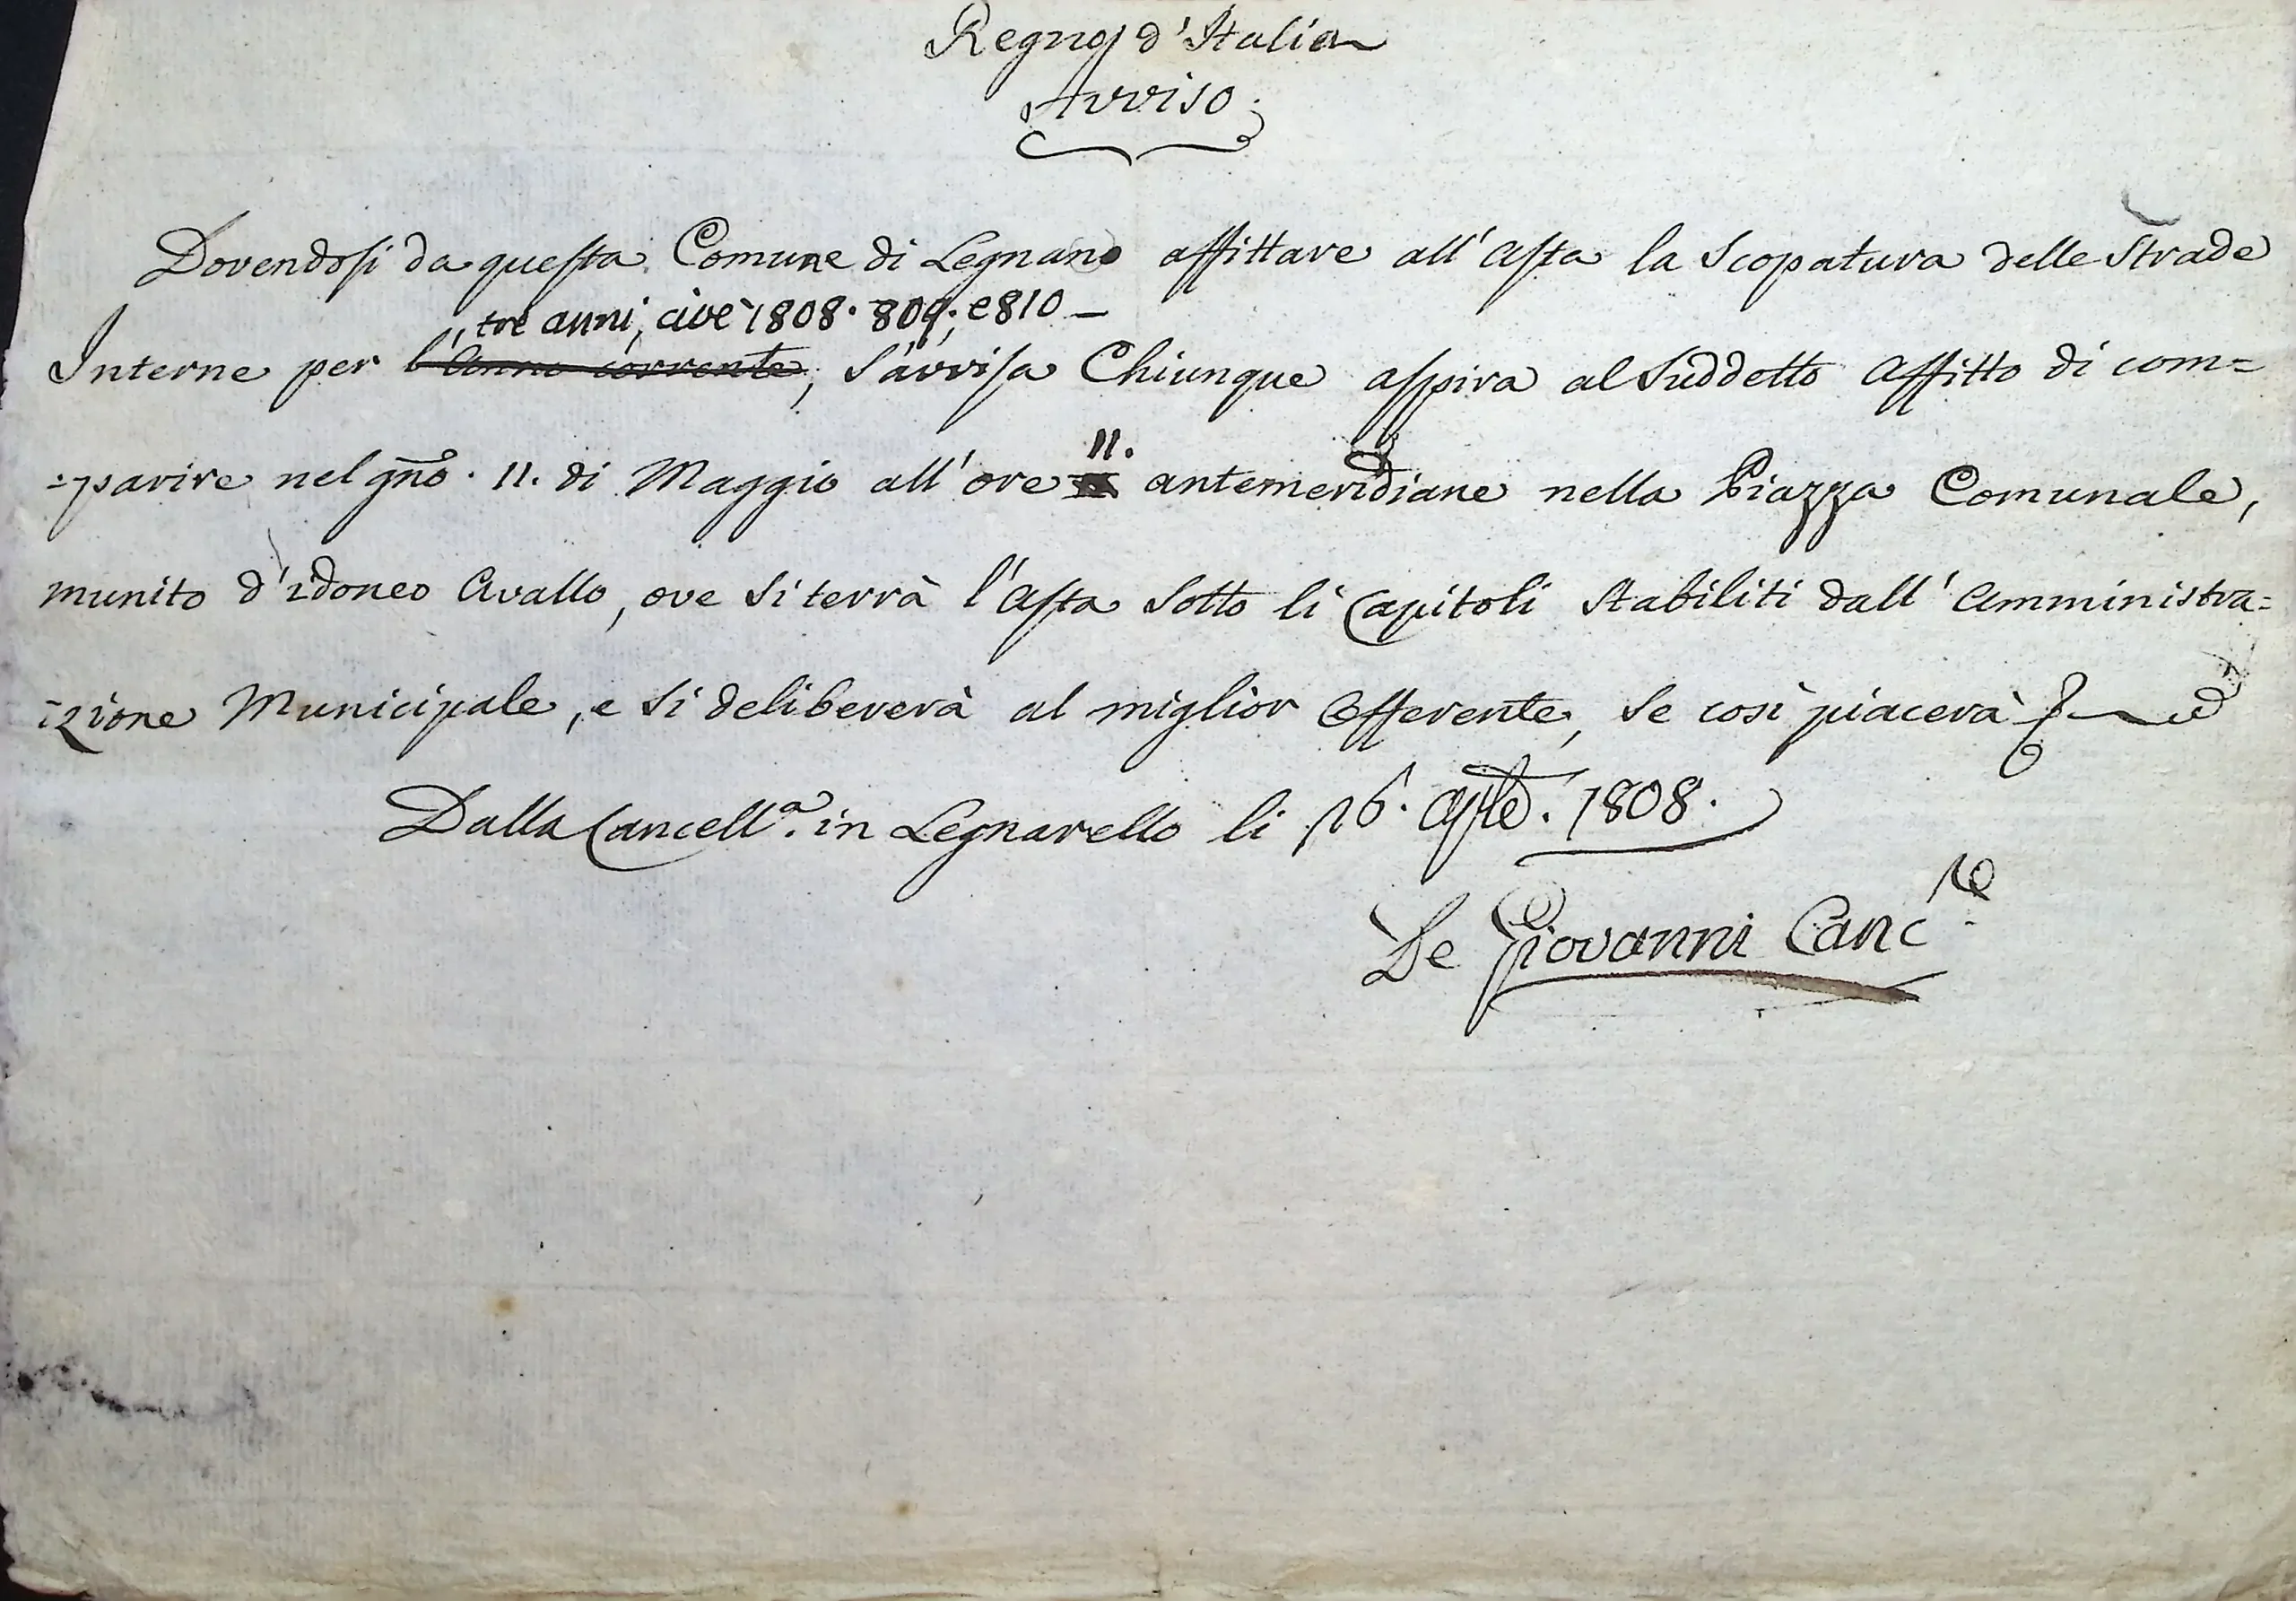 Regno d'Italia
Avviso.
Dovendosi da questa Comune di Legnano affittare all'Asta la Scopatura delle Strade
tre anni, cioè 1808. 809. e 810 –
Interne per l'Anno corrente, S'avvisa Chiunque aspira al Suddetto Affitto di com=
=parire nel gno. 11. di Maggio all'ore 11. antemeridiane nella Piazza Comunale,
munito d'idoneo Avallo, ove Si terrà l'Asta Sotto li Capitoli Stabiliti dall'Amministra=
=zione Municipale, e Si delibererà al miglior Offerente, Se così piacerà
Dalla Cancell.a in Legnarello li 16. Aple. 1808.
De Giovanni Canc.re